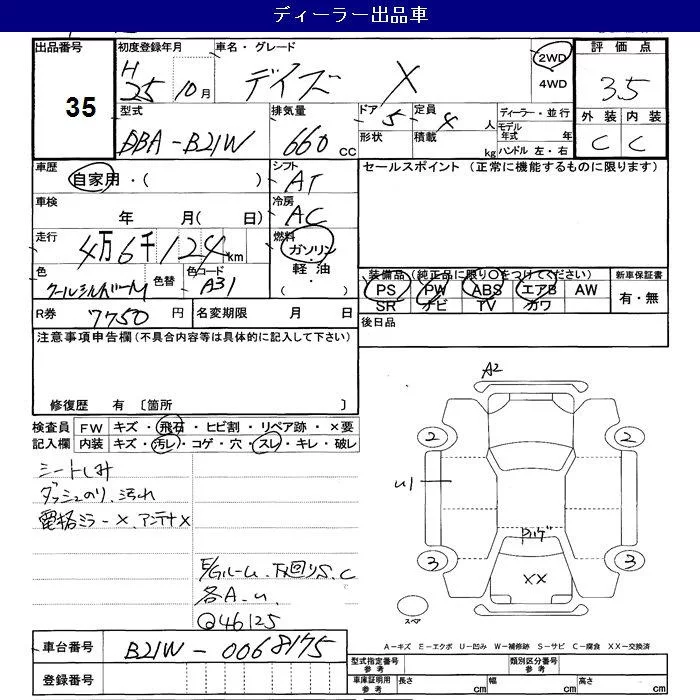 ディーラー出品車
出品番号 初度登録年月 車名・グレード 2WD 4WD 評価点
35 H 25 10月 デイズ X 3.5
型式 排気量 ドア 5 定員 4 人 ディーラー・並行 外装 内装
DBA-B21W 660 cc 形状 積載 kg モデル年式 年 ハンドル 左・右 C C
車歴 シフト セールスポイント (正常に機能するものに限ります)
自家用・( ) AT
車検 冷房
年 月( 日) AC
走行 燃料
4万6千124km ガソリン 軽油 ( ・ )
色 色替 色コード 装備品(純正品に限り○をつけてください) 新車保証書
クールシルバーM A31 PS PW ABS エアB AW 有・無
SR ナビ TV カワ
R券 7750 円 名変期限 月 日 後日品
注意事項申告欄(不具合内容等は具体的に記入して下さい)
修復歴 有 〔箇所 〕
検査員 FW キズ・飛石・ヒビ割・リペア跡・×要
記入欄 内装 キズ・汚レ・コゲ・穴・スレ・キレ・破レ
シートしみ
ダッシュのり、汚れ
電格ミラー×、アンテナ×
E/Gルーム、下回りS、C
各A、U
@46125
A2
2 2
U1
3 3
XX
スペア
A-キズ E-エクボ U-凹み W-補修跡 S-サビ C-腐食 XX-交換済
車台番号 B21W-0068175
登録番号
型式指定番号 参考 類別区分番号 参考
車庫証明用 参考 長さ cm 幅 cm 高さ cm